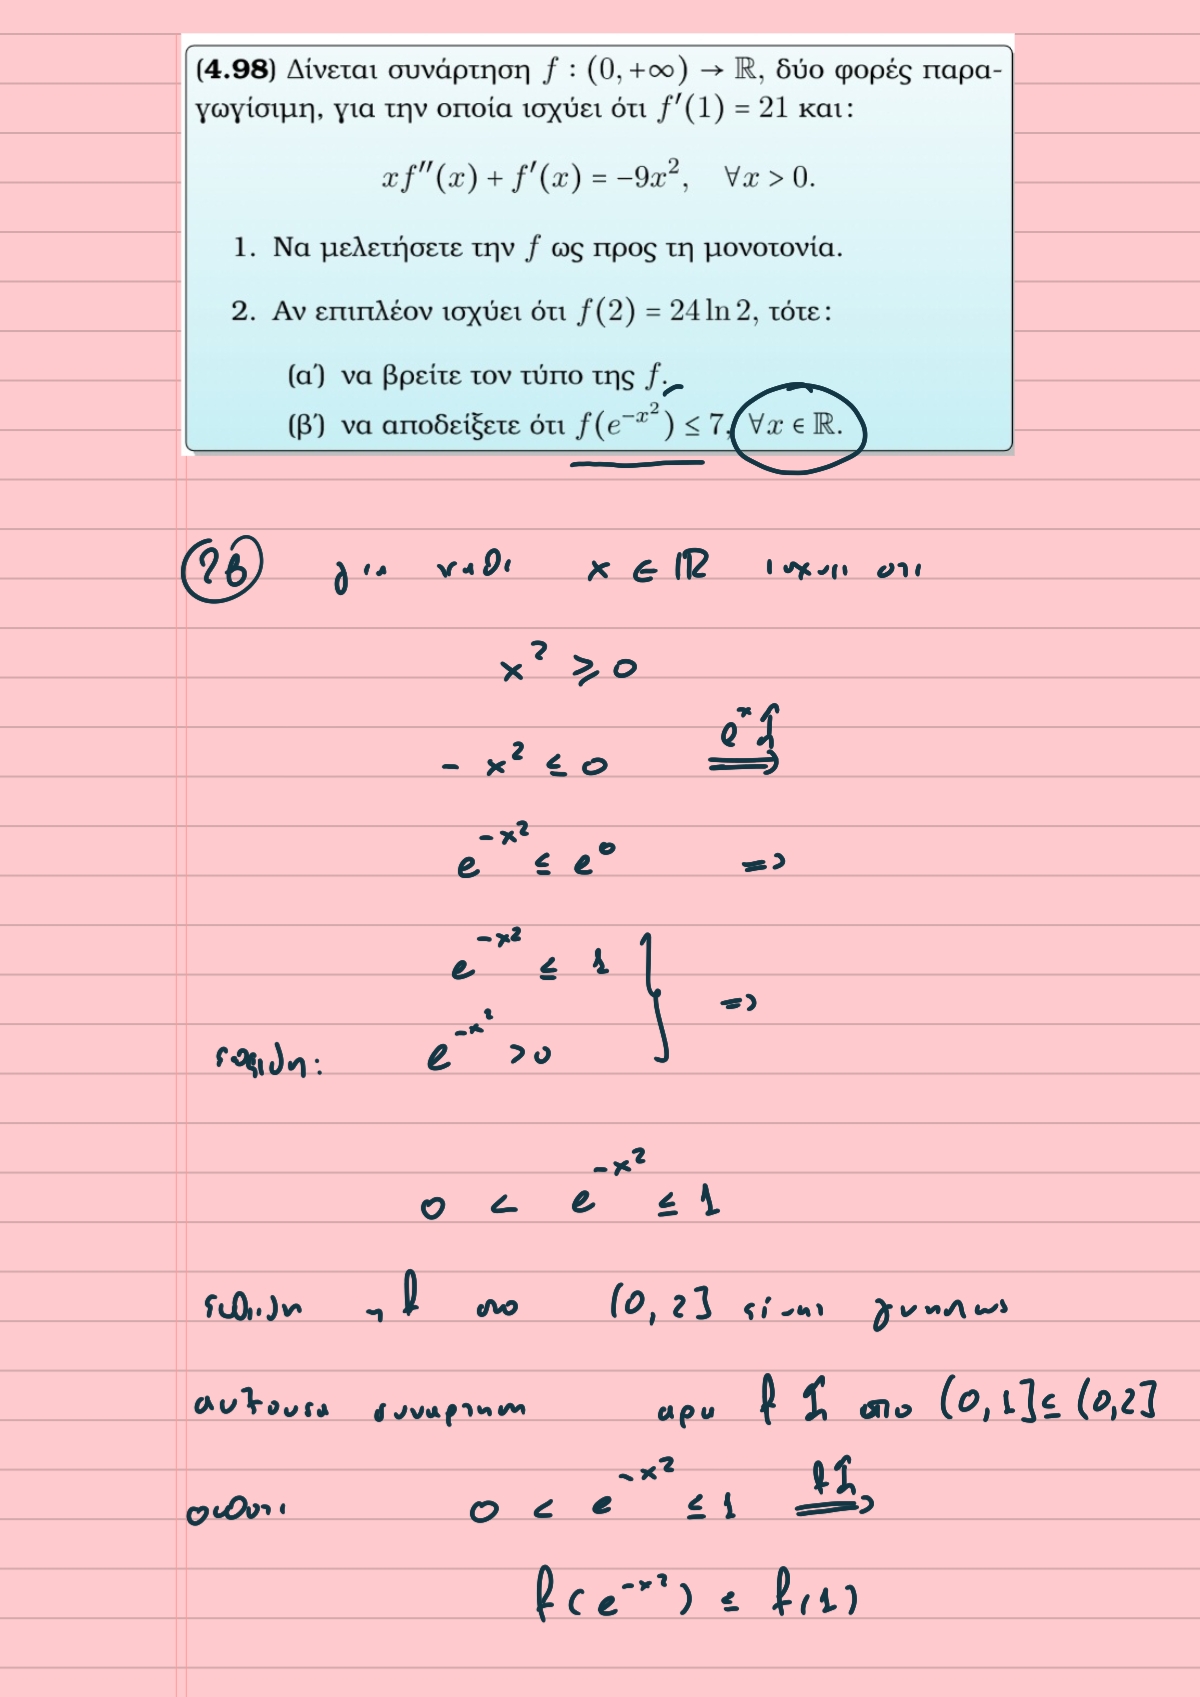 (4.98) Δίνεται συνάρτηση f : (0, +∞) → ℝ, δύο φορές παρα-
γωγίσιμη, για την οποία ισχύει ότι f′(1) = 21 και:
xf″(x) + f′(x) = −9x², ∀x > 0.
1. Να μελετήσετε την f ως προς τη μονοτονία.
2. Αν επιπλέον ισχύει ότι f(2) = 24 ln 2, τότε:
(α΄) να βρείτε τον τύπο της f.
(β΄) να αποδείξετε ότι f(e^{−x²}) ≤ 7, ∀x ∈ ℝ.
2β για κάθε x ∈ ℝ ισχύει οτι
x² ≥ 0
- x² ≤ 0 e^x ↑ ⟹
e^{-x²} ≤ e⁰ ⇒
e^{-x²} ≤ 1 } ⇒
e^{-x²} > 0
0 < e^{-x²} ≤ 1
επειδη η f στο (0, 2] είναι γνησιως
αυξουσα συναρτηση αρα f ↑ στο (0, 1] ⊆ (0, 2]
οποτε 0 < e^{-x²} ≤ 1 f ↑ ⟹
f(e^{-x²}) ≤ f(1)